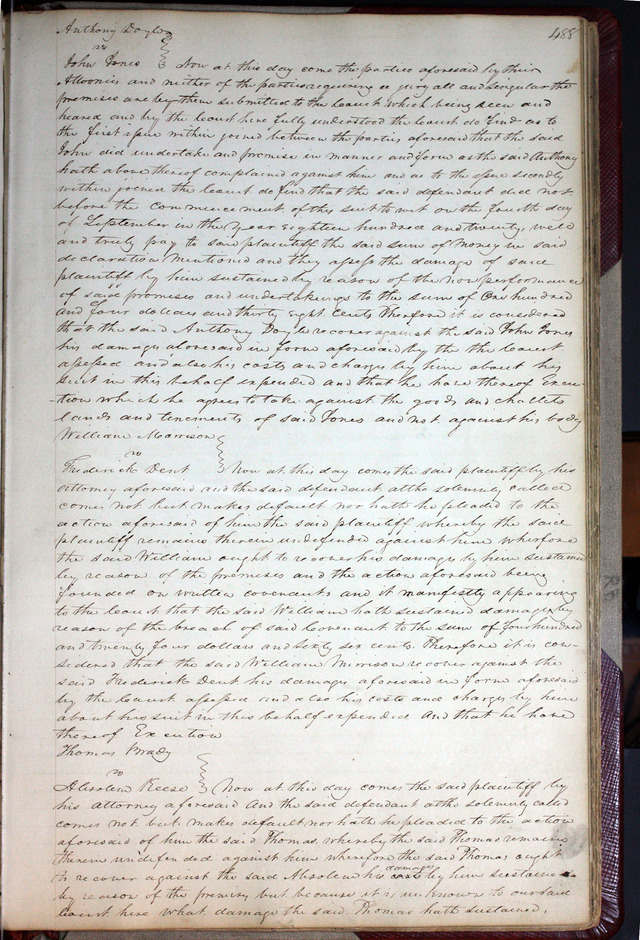 488
Anthony Doyle
vs
John Jones Now at this day come the parties aforesaid by their
Attornies and neither of the parties requiring a jury all and singular the
premises are by them submitted to the Court which being seen and
heared and by the Court here fully understood the Court do find as to
the first issue within joined between the parties aforesaid that the said
John did undertake and promise in manner and form as the said Anthony
hath above thereof complained against him and as to the issue secondly
within joined the Court do find that the said defendant did not
before the commencement of this suit to wit on the fourth day
of September in the year Eighteen hundred and twenty, well
and truly pay to said plaintiff the said sum of money in said
declaration mentioned and they assess the damage of said
plaintiff by him sustained by reason of the non performance
of said promises and undertakings to the sum of One hundred
and four dollars and thirty eight cents Therefore it is considered
that the said Anthony Doyle recover against the said John Jones
his damages aforesaid in form aforesaid by the the Court
assessed and also his costs and charges by him about his
suit in this behalf expended and that he have thereof Execu
tion which he agrees to take against the goods and chattels
lands and tenements of said Jones and not against his body
William Morrison
vs
Frederick Dent Now at this day comes the said plaintiff by his
attorney aforesaid and the said defendant altho solemnly called
comes not but makes default nor hath he pleaded to the
action aforesaid of him the said plaintiff whereby the said
plaintiff remains therein undefended against him wherefore
the said William ought to recover his damages by him sustained
by reason of the premises and the action aforesaid being
founded on written covenants and it manifestly appearing
to the Court that the said William hath sustained damages by
reason of the breach of said Covenant to the sum of four hundred
and twenty four dollars and sixty six cents. Therefore it is con-
sidered that the said William Morrison recover against the
said Frederick Dent his damages aforesaid in form aforesaid
by the Court assessed and also his costs and charges by him
about his suit in this behalf expended and that he have
thereof Execution
Thomas Brady
vs
Absolem Reese Now at this day comes the said plaintiff by
his attorney aforesaid and the said defendant altho solemnly called
comes not but makes default nor hath he pleaded to the action
aforesaid of him the said Thomas, whereby the said Thomas remains
therein undefended against him wherefore the said Thomas ought
to recover against the said Absolem his damages by him sustained
by reason of the premises but because it is unknown to our said
Court here what damage the said Thomas hath sustained,